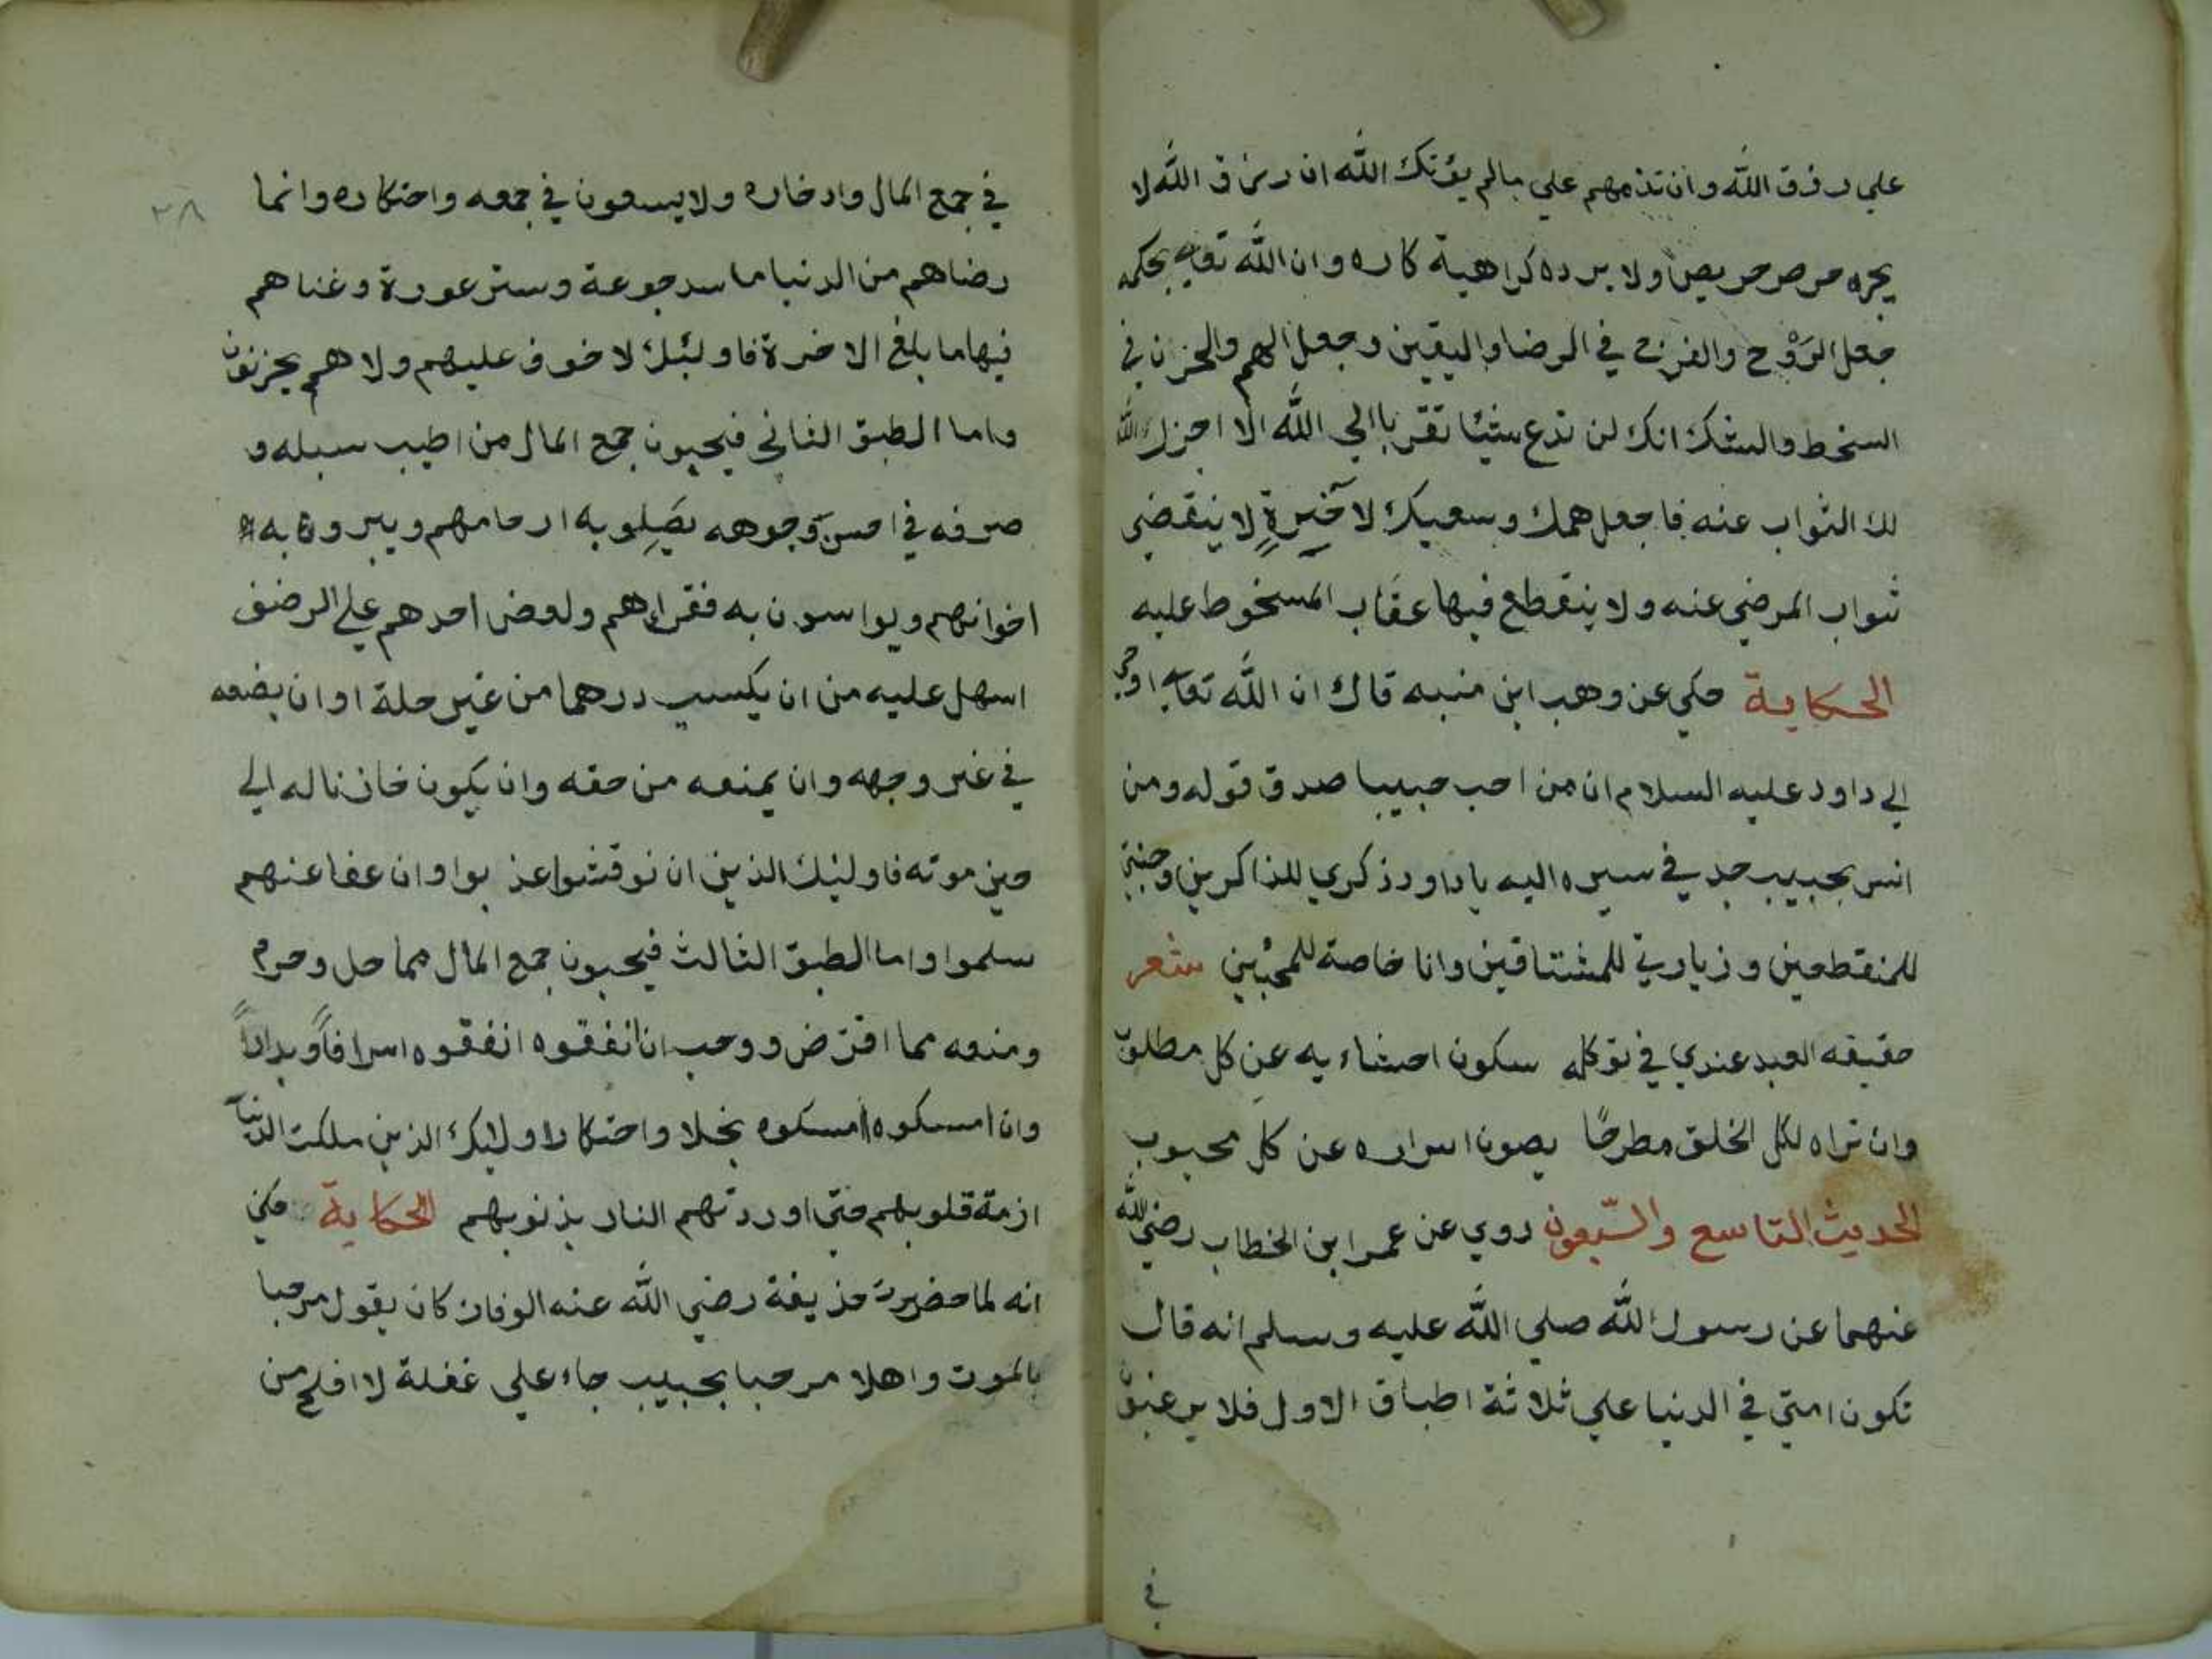 علي رزق الله وان تذمهم علي مالم يؤتك الله ان رزق الله لا
يجره حرص حريص ولا يرده كراهية كاره وان الله تعالي بحكمه
جعل الرَوْح والفرح في الرضا واليقين وجعل الهم والحزن في
السخط والشك انك لن تدع شيئا تقربا الي الله الا اجزل الله
لك الثواب عنه فاجعل همك وسعيك لآخرةٍ لا ينقضي
ثواب المرضي عنه ولا ينقطع فيها عقاب المسخوط عليه
الحكاية حكي عن وهب ابن منبه قال ان الله تعالي اوحي
الي داود عليه السلام ان من احب حبيبا صدق قوله ومن
انس بحبيب جد في سيره اليه يا داود ذكري للذاكرين وجنتي
للمنقطعين وزيارتي للمشتاقين وانا خاصة للمحبين شعر
حقيقه العبد عندي في توكله سكون احشاءيه عن كل مطلوب
وان تراه لكل الخلق مطرحًا يصون اسراره عن كل محبوب
الحديث التاسع والسّبعون روي عن عمر ابن الخطاب رضي الله
عنهما عن رسول الله صلي الله عليه وسلم انه قال
تكون امتي في الدنيا علي ثلاثة اطباق الاول فلا يرغبون
في
٣٨
في جمع المال وادخاره ولا يسعون في جمعه واحتكاره وانما
رضاهم من الدنيا ما سد جوعة وستر عورة وغناهم
فيها ما بلغ الاخرة فاولئك لا خوف عليهم ولا هم يحزنون
واما الطبق الثاني فيحبون جمع المال من اطيب سبله و
صرفه في احسن وجوهه يَصِلو به ارحامهم ويبرون به
اخوانهم ويواسون به فقراءهم ولعض احدهم علي الرضف
اسهل عليه من ان يكسب درهما من غير حلة او ان يضعه
في غير وجهه وان يمنعه من حقه وان يكون خازنا له الي
حين موته فاولئك الذين ان نوقشوا عذبوا وان عفا عنهم
سلموا واما الطبق الثالث فيحبون جمع المال مما حل وحرم
ومنعه مما افترض ووجب ان انفقوه انفقوه اسرافاً وبداراً
وان امسكوه امسكوه بخلا واحتكارا اولئك الذين ملكت الدنيا
ازمة قلوبهم حتي اوردتهم النار بذنوبهم الحكاية حكي
انه لما حضرت حذيفة رضي الله عنه الوفاة كان يقول مرحبا
بالموت واهلا مرحبا بحبيب جاء علي غفلة لا افلح من